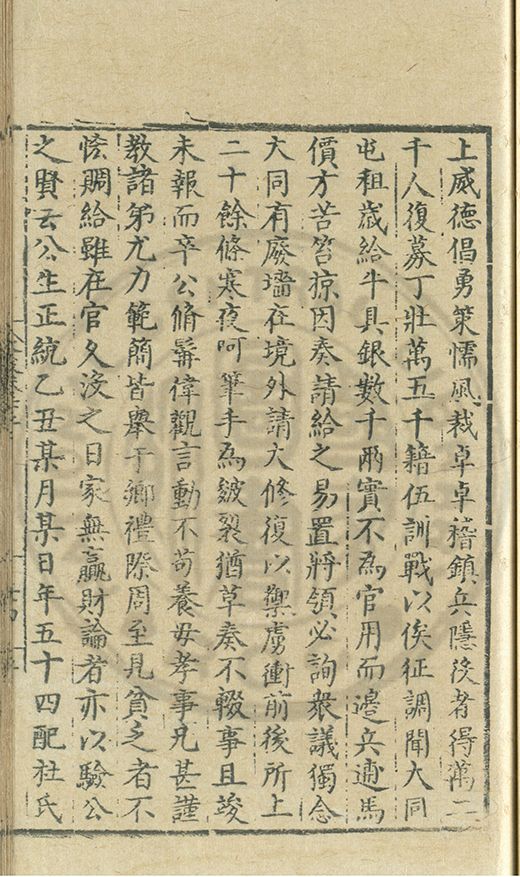 上威德倡勇策懦風裁卓卓稽鎮兵隱役者得萬二
千人復募丁壯萬五千籍伍訓戰以俟征調聞大同
屯租歲給牛具銀數千兩實不為官用而邊兵逋馬
價方苦笞掠因奏請給之易置將領必詢衆議獨念
大同有廢墻在境外請大修復以禦虜衝前後所上
二十餘條寒夜呵筆手為皴裂猶草奏不輟事且竣
未報而卒公脩髯偉觀言動不苟養母孝事兄甚謹
教諸弟尤力範簡皆舉于鄉禮際周至見貧乏者不
恡賙給雖在官久沒之日家無贏財論者亦以驗公
之賢云公生正統乙丑某月某日年五十四配杜氏